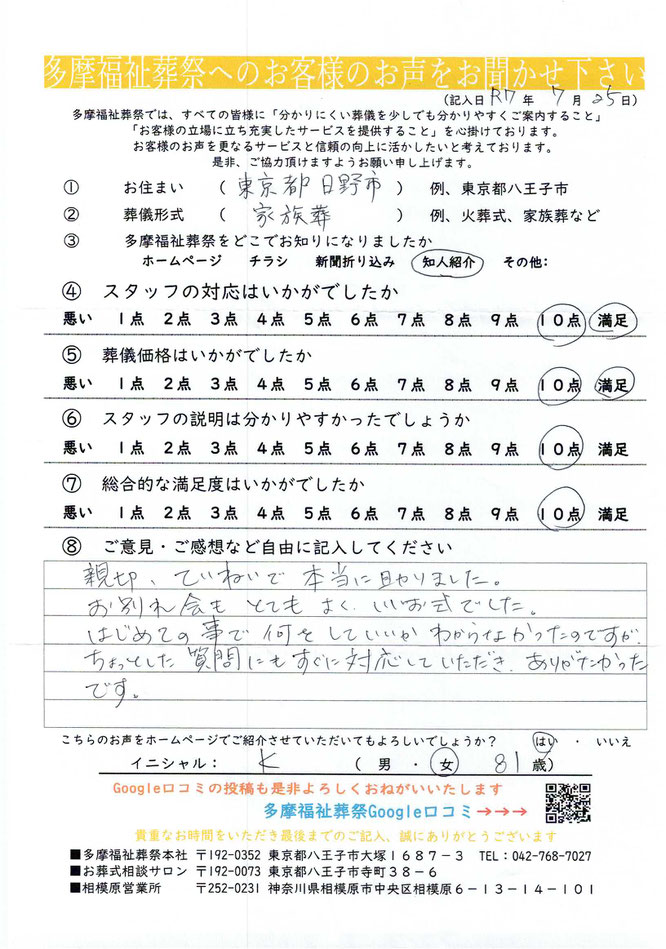 多摩福祉葬祭へのお客様のお声をお聞かせ下さい
(記入日 R7 年 7 月 25 日)
多摩福祉葬祭では、すべての皆様に「分かりにくい葬儀を少しでも分かりやすくご案内すること」
「お客様の立場に立ち充実したサービスを提供すること」を心掛けております。
お客様のお声を更なるサービスと信頼の向上に活かしたいと考えております。
是非、ご協力頂けますようお願い申し上げます。
① お住まい （ 東京都日野市 ） 例、東京都八王子市
② 葬儀形式 （ 家族葬 ） 例、火葬式、家族葬など
③ 多摩福祉葬祭をどこでお知りになりましたか
ホームページ チラシ 新聞折り込み 知人紹介 その他:
④ スタッフの対応はいかがでしたか
悪い 1点 2点 3点 4点 5点 6点 7点 8点 9点 10点 満足
⑤ 葬儀価格はいかがでしたか
悪い 1点 2点 3点 4点 5点 6点 7点 8点 9点 10点 満足
⑥ スタッフの説明は分かりやすかったでしょうか
悪い 1点 2点 3点 4点 5点 6点 7点 8点 9点 10点 満足
⑦ 総合的な満足度はいかがでしたか
悪い 1点 2点 3点 4点 5点 6点 7点 8点 9点 10点 満足
⑧ ご意見・ご感想など自由に記入してください
親切、ていねいで 本当に助かりました。
お別れ会も とてもよく、いいお式でした。
はじめての事で 何をしていいか わからなかったのですが、
ちょっとした 質問にも すぐに対応していただき、ありがたかった
です。
こちらのお声をホームページでご紹介させていただいてもよろしいでしょうか？ はい ・ いいえ
イニシャル： K （ 男 ・ 女 81 歳）
Google口コミの投稿も是非よろしくおねがいいたします
多摩福祉葬祭Google口コミ→→→
貴重なお時間をいただき最後までのご記入、誠にありがとうございます
■多摩福祉葬祭本社 〒192-0352 東京都八王子市大塚1687-3 TEL：042-768-7027
■お葬式相談サロン 〒192-0073 東京都八王子市寺町38-6
■相模原営業所 〒252-0231 神奈川県相模原市中央区相模原6-13-14-101